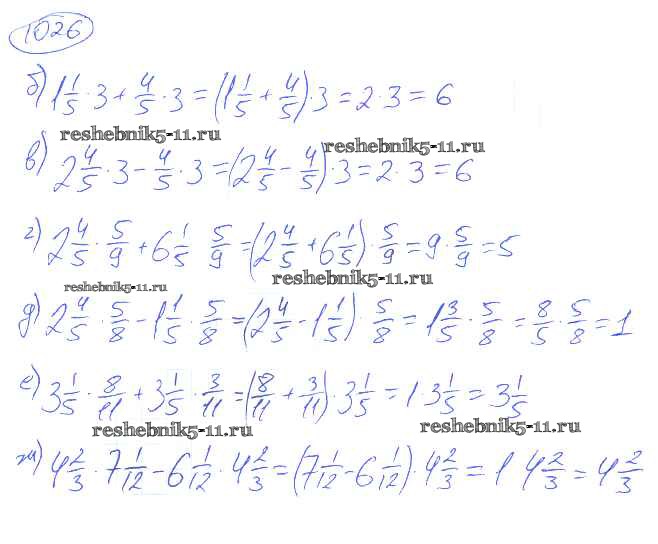 1026
б) 1 1/5 · 3 + 4/5 · 3 = (1 1/5 + 4/5) · 3 = 2 · 3 = 6
reshebnik5-11.ru
reshebnik5-11.ru
в) 2 4/5 · 3 - 4/5 · 3 = (2 4/5 - 4/5) · 3 = 2 · 3 = 6
г) 2 4/5 · 5/9 + 6 1/5 5/9 = (2 4/5 + 6 1/5) · 5/9 = 9 · 5/9 = 5
reshebnik5-11.ru
reshebnik5-11.ru
д) 2 4/5 · 5/8 - 1 1/5 · 5/8 = (2 4/5 - 1 1/5) · 5/8 = 1 3/5 · 5/8 = 8/5 · 5/8 = 1
е) 3 1/5 · 8/11 + 3 1/5 · 3/11 = (8/11 + 3/11) · 3 1/5 = 1 · 3 1/5 = 3 1/5
reshebnik5-11.ru
reshebnik5-11.ru
ж) 4 2/3 · 7 1/12 - 6 1/12 · 4 2/3 = (7 1/12 - 6 1/12) · 4 2/3 = 1 4 2/3 = 4 2/3